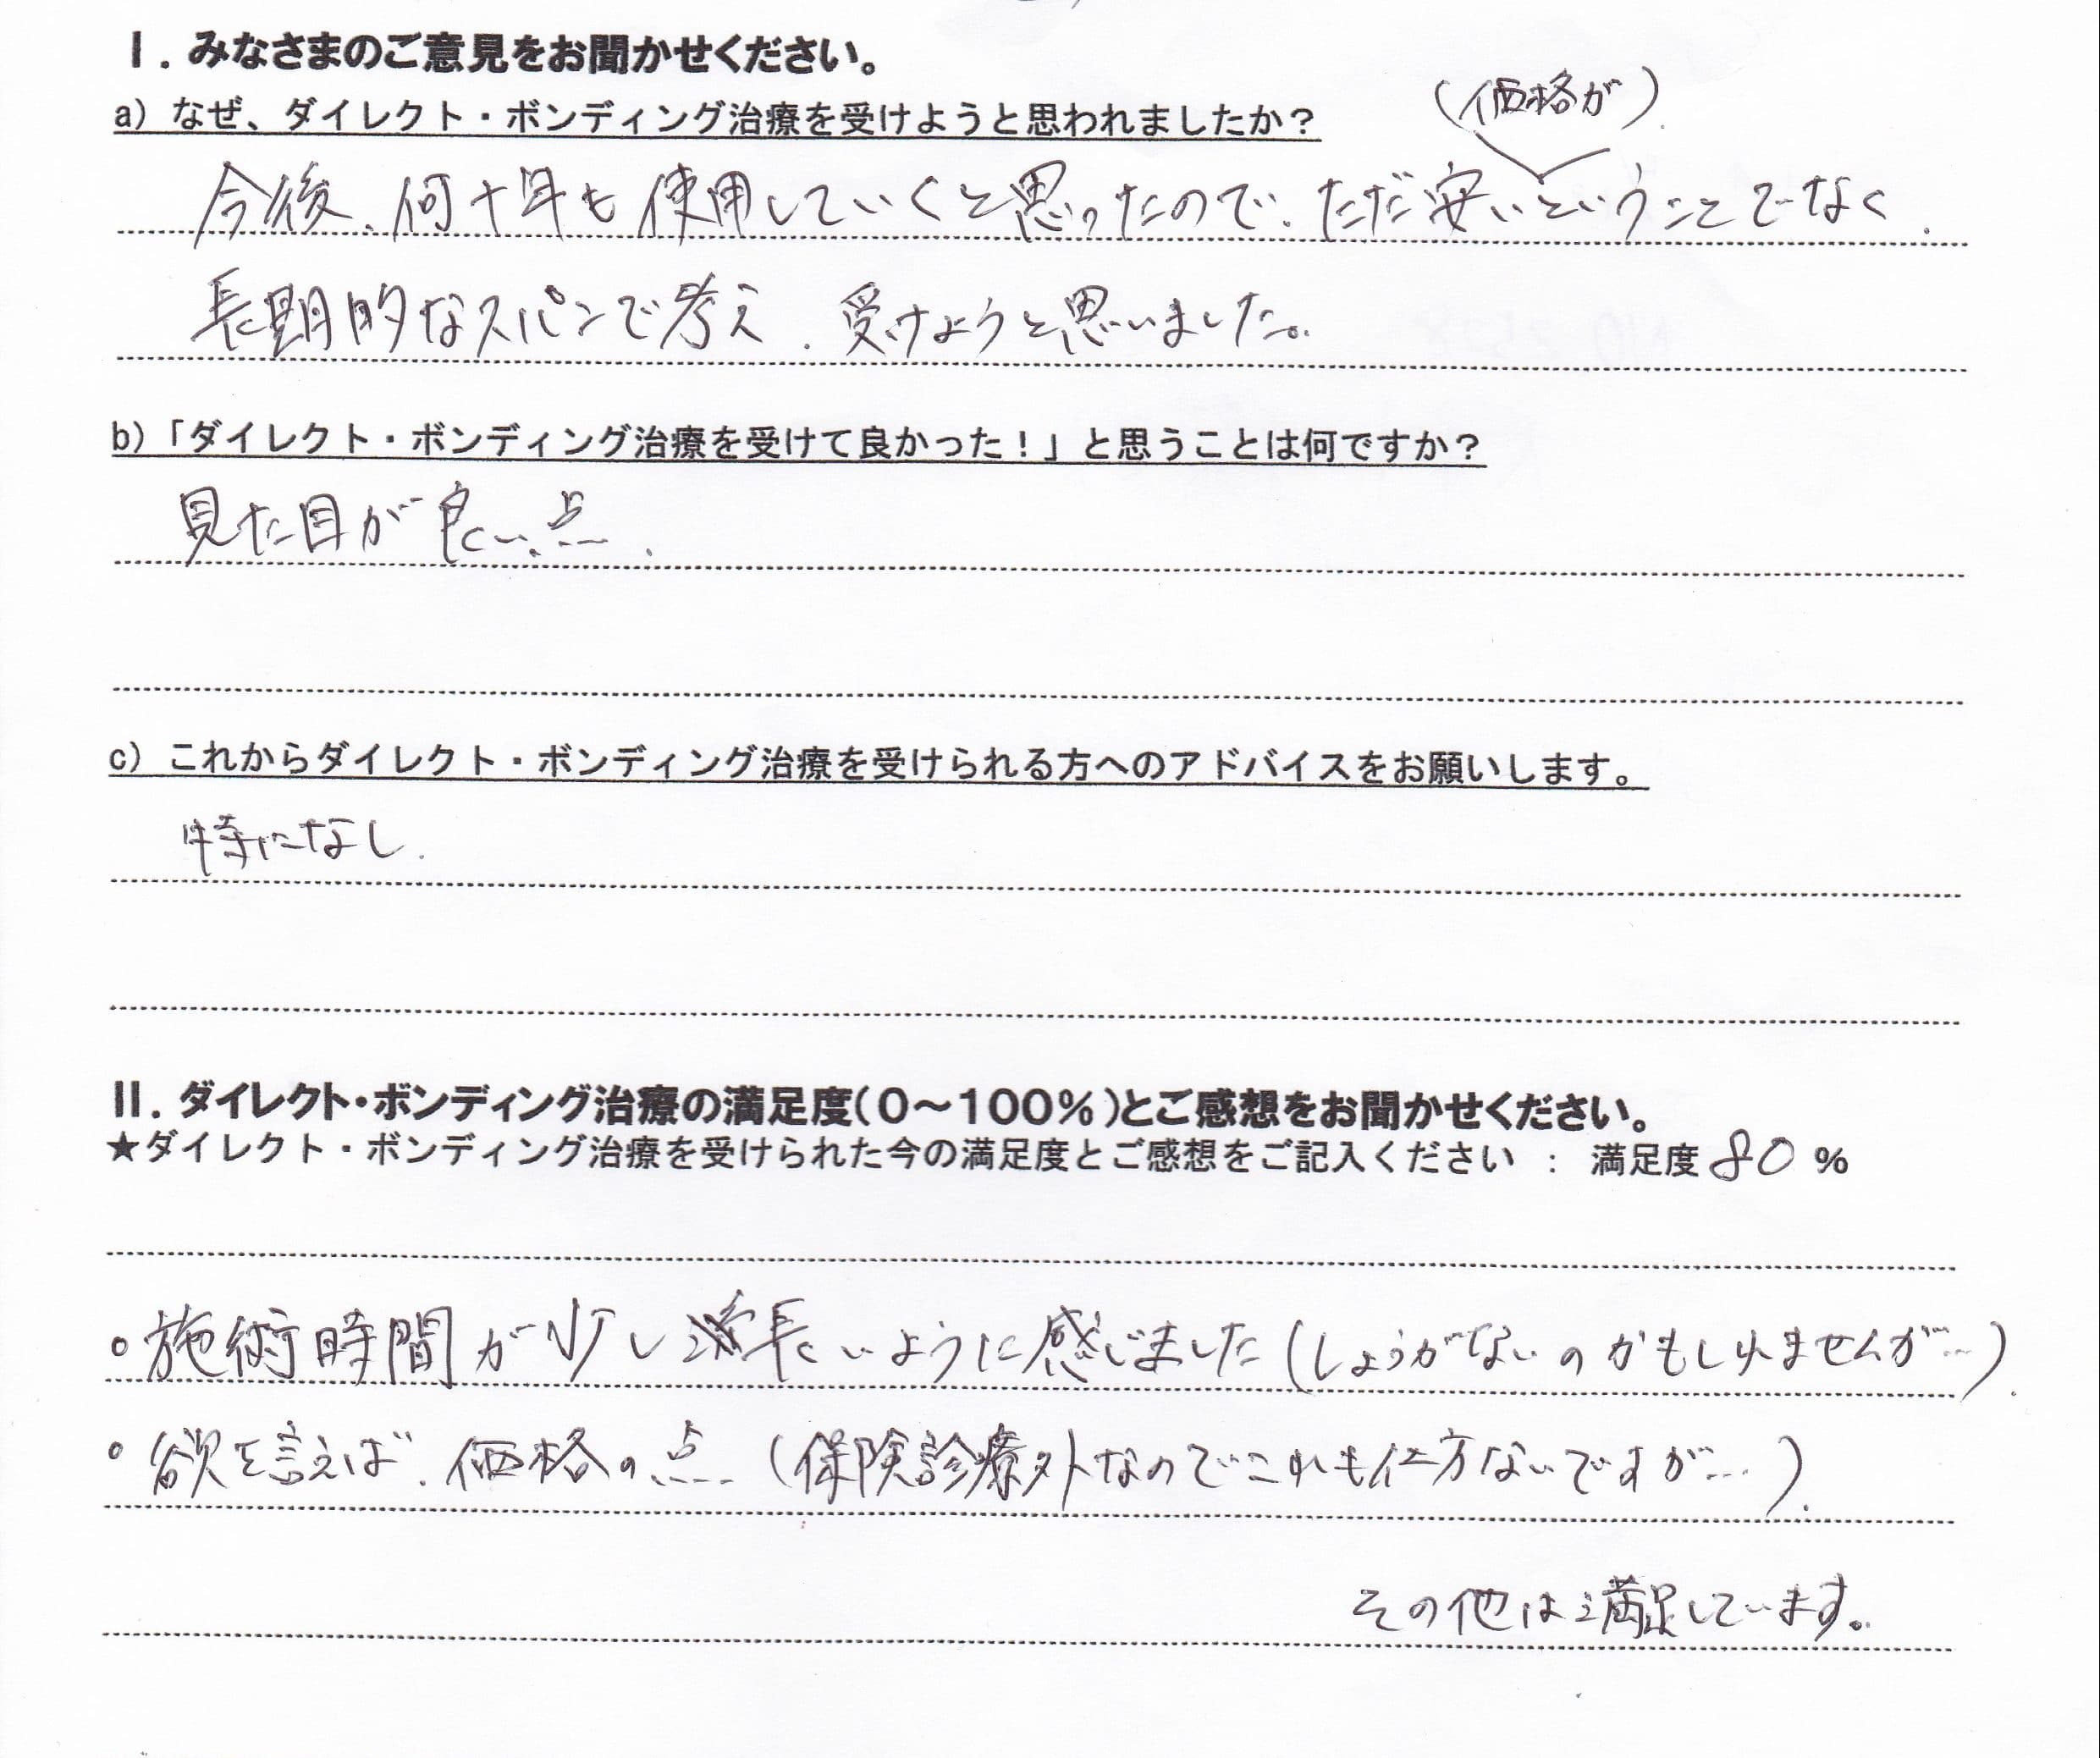 I. みなさまのご意見をお聞かせください。
a) なぜ、ダイレクト・ボンディング治療を受けようと思われましたか？
(価格が)
今後、何十年も使用していくと思ったので、ただ安いということでなく、
長期的なスパンで考え、受けようと思いました。
b)「ダイレクト・ボンディング治療を受けて良かった！」と思うことは何ですか？
見た目が良い点、
c) これからダイレクト・ボンディング治療を受けられる方へのアドバイスをお願いします。
特になし、
II. ダイレクト・ボンディング治療の満足度(０～１００％)とご感想をお聞かせください。
★ダイレクト・ボンディング治療を受けられた今の満足度とご感想をご記入ください ： 満足度 80 %
。施術時間が少し長いように感じました(しょうがないのかもしれませんが…)、
。欲を言えば、価格の点…(保険診療外なのでこれも仕方ないですが…)、
その他は満足しています。